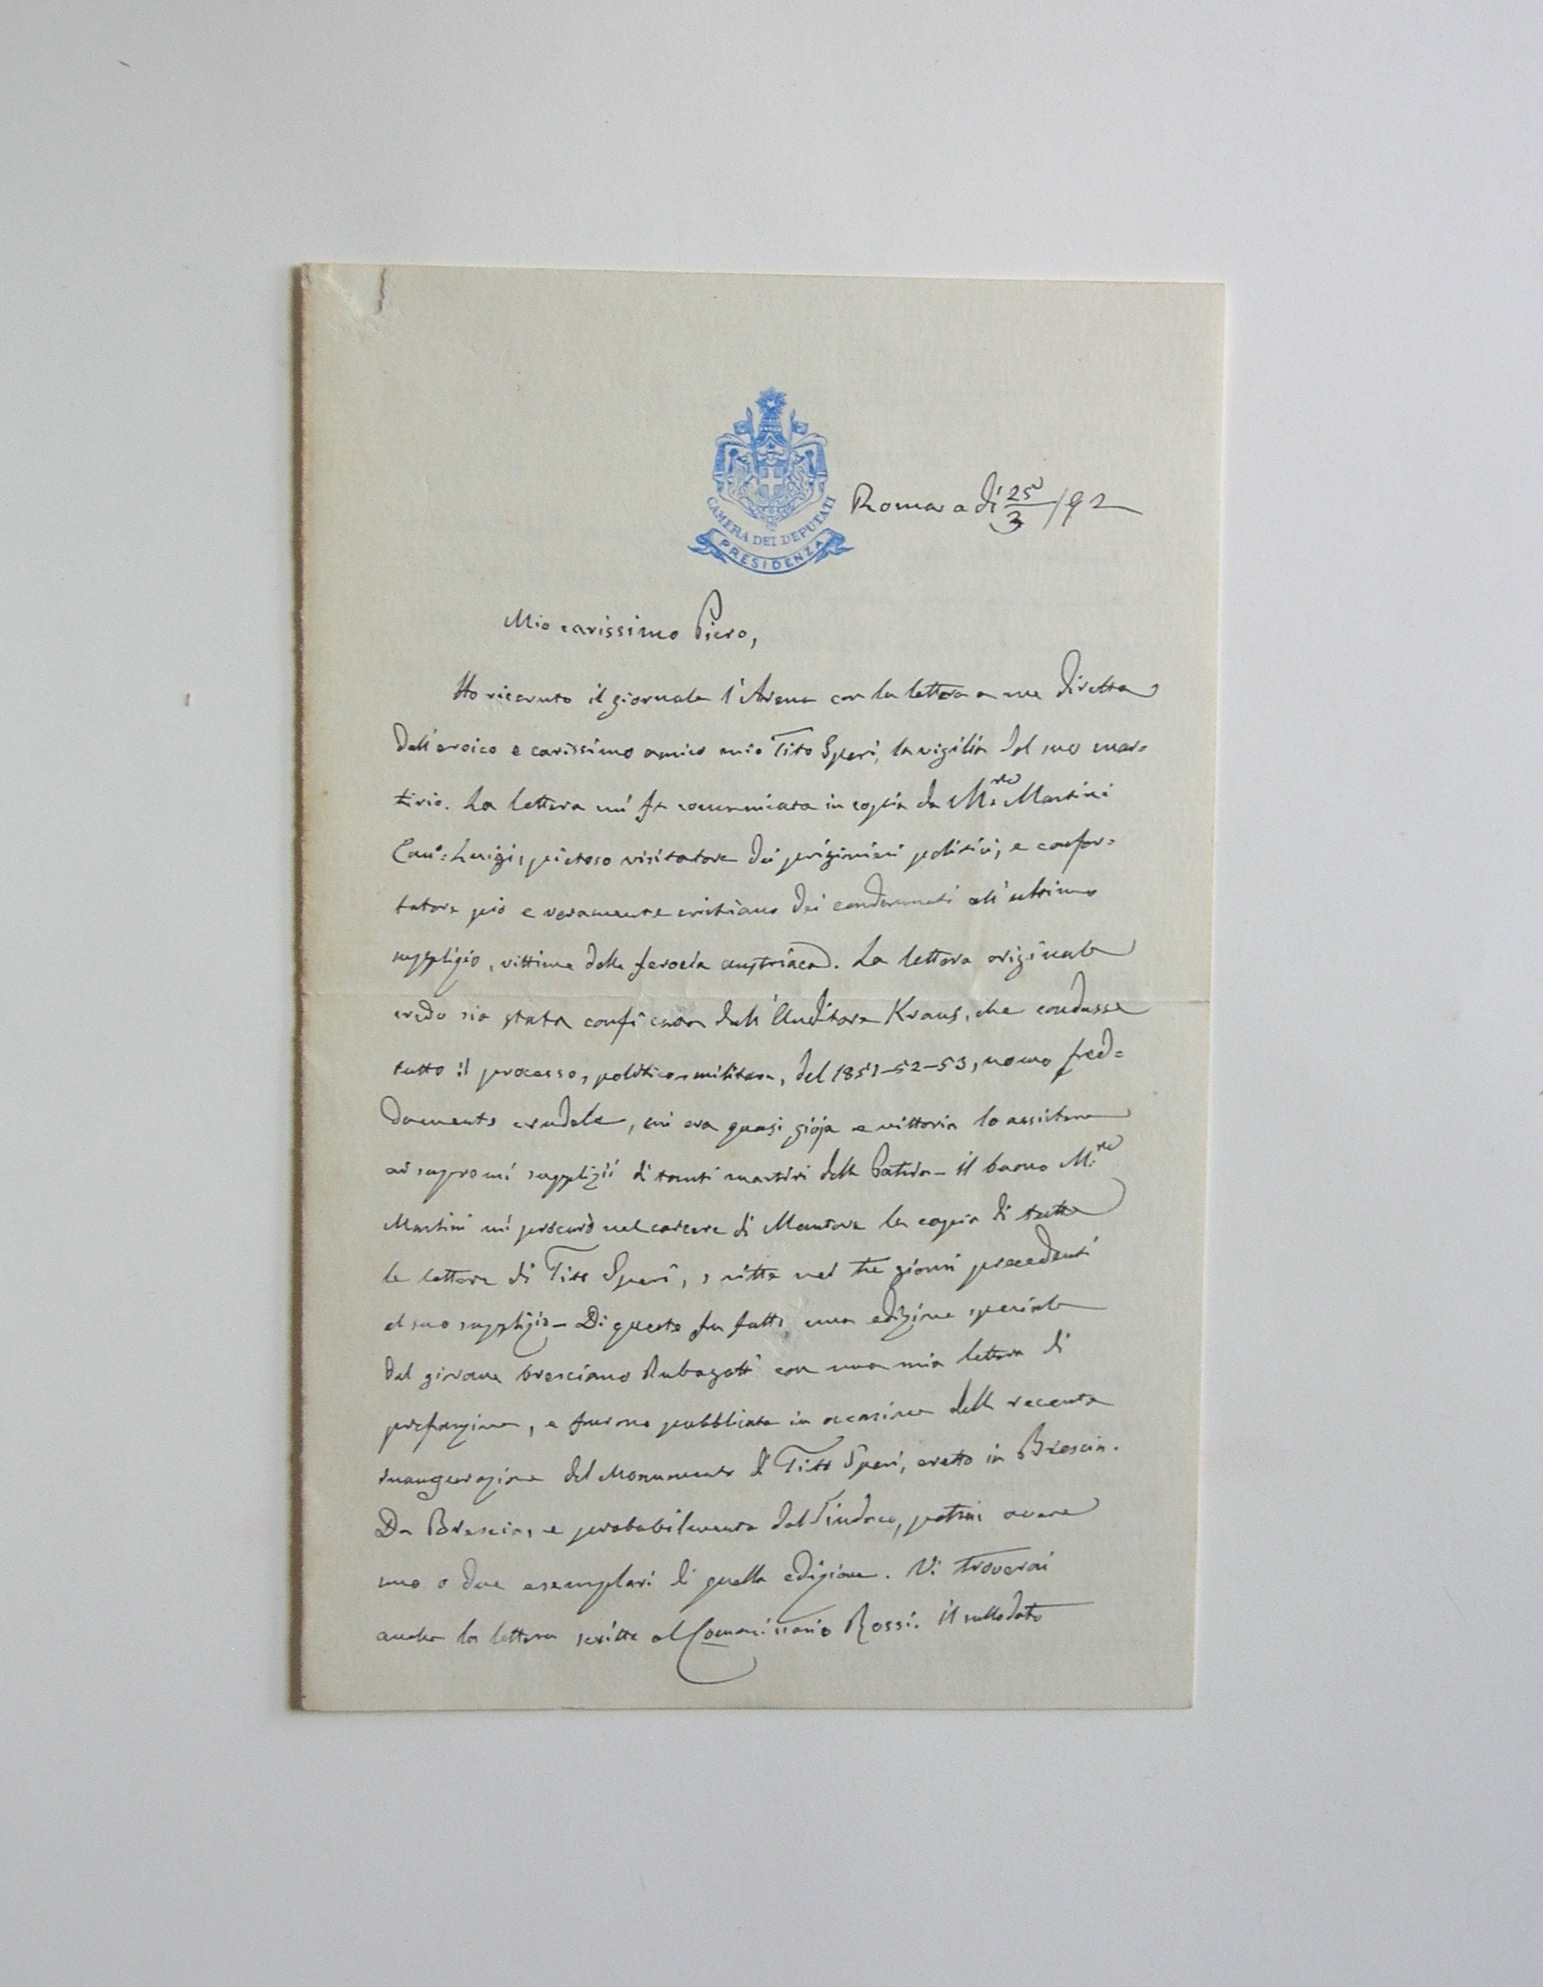 CAMERA DEI DEPUTATI
PRESIDENZA
Roma a dì 25/3/92
Mio carissimo Piero,
Ho ricevuto il giornale l'Arena con la lettera a me diretta
dall'eroico e carissimo amico mio Tito Speri, la vigilia del suo mar=
tirio. La lettera mi fu comunicata in copia da M.re Martini
Can.o Luigi, pietoso visitatore dei prigionieri politici, e confor=
tatore pio e veramente cristiano dei condannati all'ultimo
supplizio, vittime della ferocia austriaca. La lettera originale
credo sia stata confiscata dall'Auditore Kraus, che condusse
tutto il processo, politico-militare, del 1851-52-53, uomo fred=
damente crudele, cui era quasi gioja e vittoria lo assistere
ai supremi supplizii di tanti martiri della Patria - il buono M.re
Martini mi procurò nel carcere di Mantova la copia di tutte
le lettere di Tito Speri, scritte nei tre giorni precedenti
al suo supplizio - Di queste fu fatta una edizione speciale
dal giovane bresciano Rubagotti con una mia lettera di
prefazione, e furono pubblicate in occasione della recente
inaugurazione del Monumento di Tito Speri, eretto in Brescia.
Da Brescia, e probabilmente dal Sindaco, potrai avere
uno o due esemplari di quella edizione. Vi troverai
anche la lettera scritta al Commissario Rossi. il sullodato